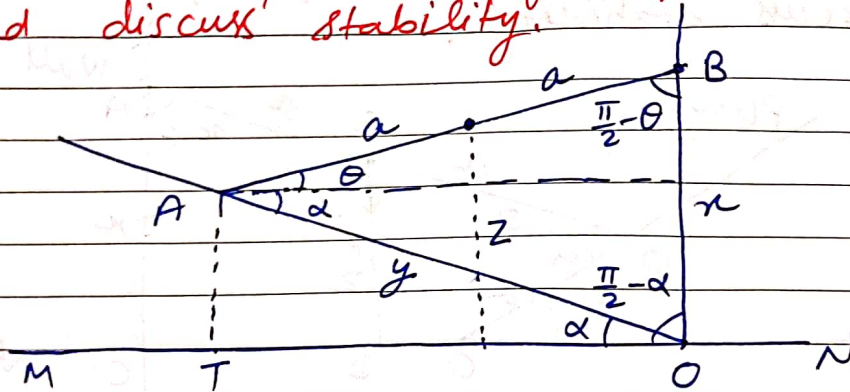 d discuss stability.
B
a
π/2-θ
a
θ
A
α
x
z
y
π/2-α
α
M
T
O
N